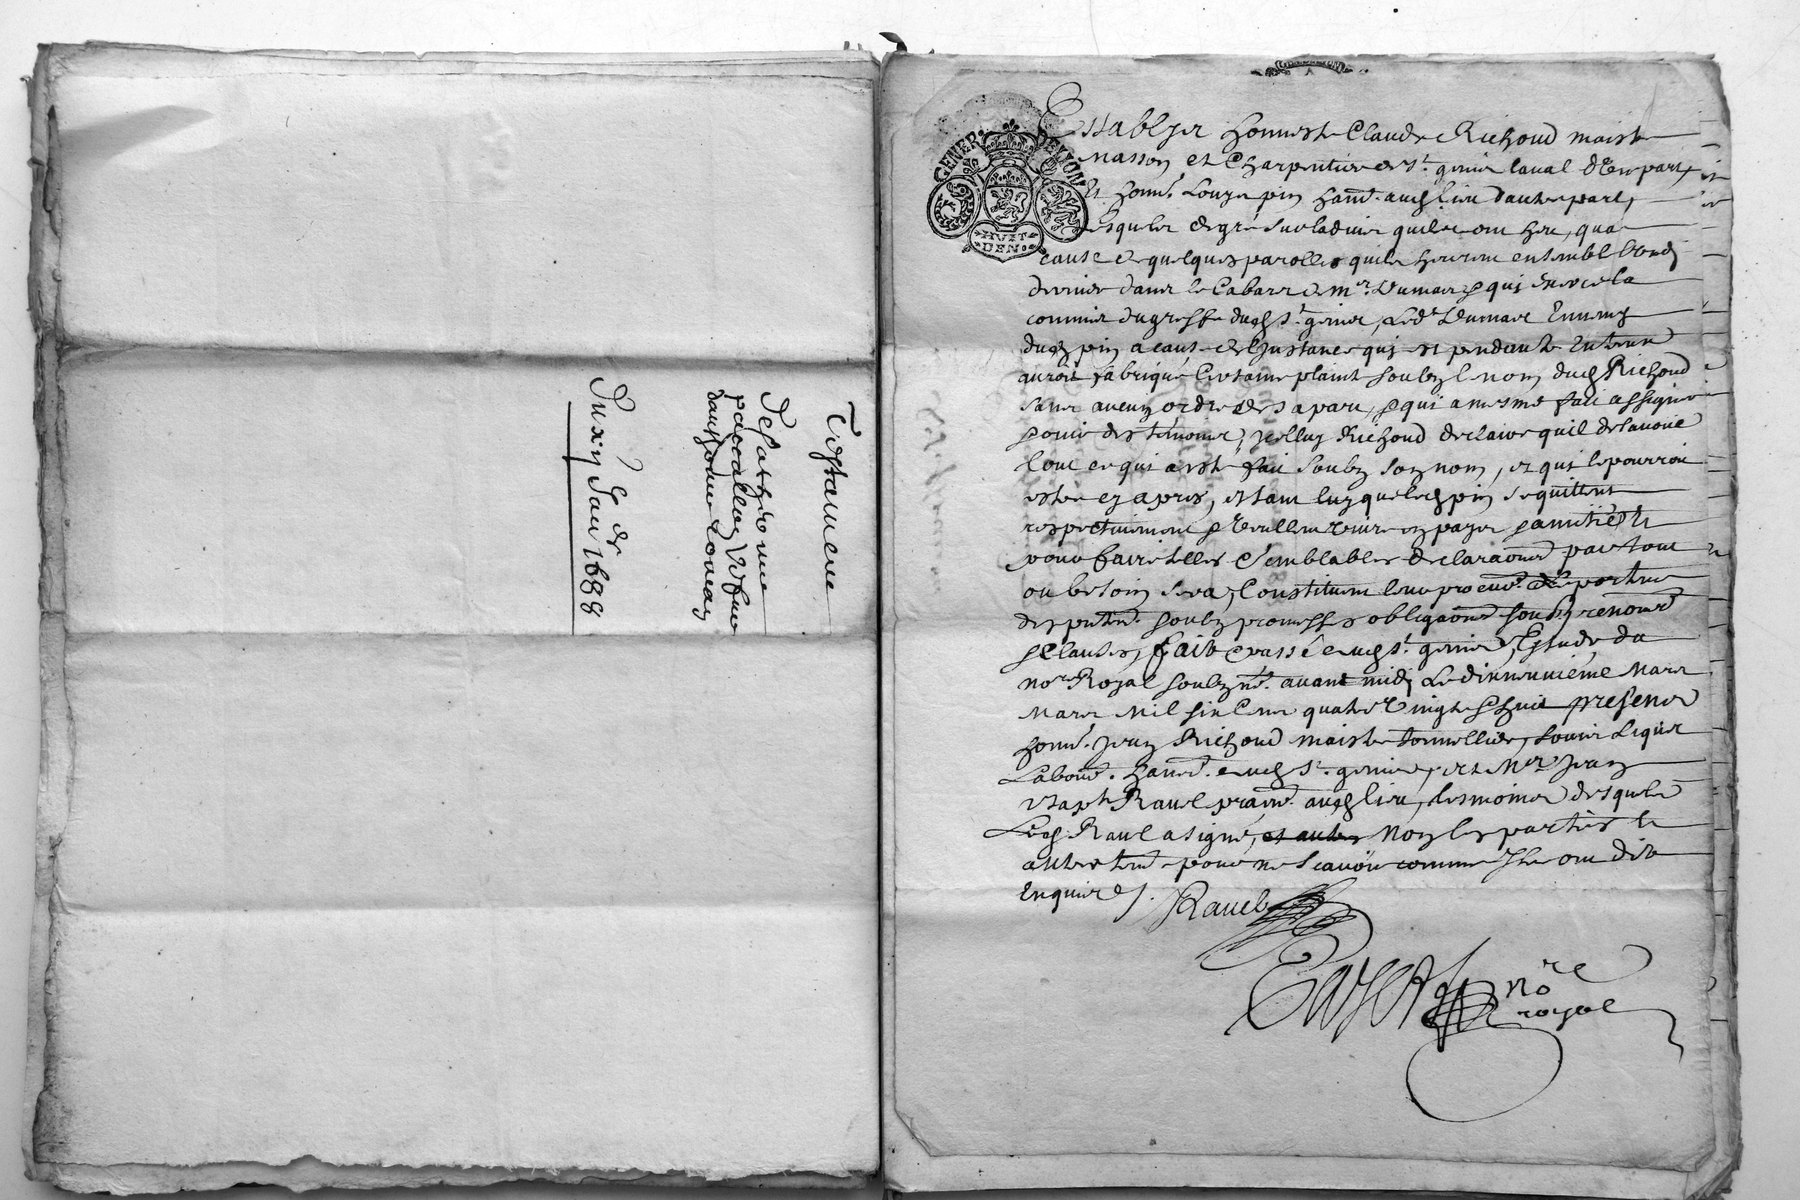 Testament
de Catherine
vefue
du xiij Janer 1688
GENER. DE LYON
HUIT
DEN.
Establyes honneste Claude Richoud maistre
Masson et Charpentier de St. genis laval d'Une part,
Et honne. Louys pin hant. audt lieu dautre part,
lesquels de gré sur ladvis quils ont heu, qua
cause de quelques parolles quils heurent ensemble
dernier dans le Cabaret de mr. Dumas qui exerce la
commis du greffe dudt St. genis, Ledt Dumas Ennemy
dudt pin a cause de l'Instance qui est pendante Entreux
auroit fabriqué Certaine plainte soubz le nom dudt Richoud
sans aucun ordre de sa part, & qui a mesme fait assigner
& ouir des témoins, Icelluy Richoud declaire quil desavoüe
tout ce qui a esté fait soubz son nom, et qui le pourroit
estre cy apres, et tant luy que ledt pin se quittent
respectivement & veullent vivre en paix & amitié &
pour faire telles & semblables declaraons par tout
ou besoin sera, Constituent leur procur. porteur
des pntes. soubz promesses obligaons soubz renonc
& clauses, fait & passé audt St. genis, Estude du
nore Royal soubzne. avant midy Le dixneuvieme Mars
Mars Mil six Cent quatre vingts & huit presents
honne. Jean Richoud maistre tonnellier,
Labour. hant. audt St. genis, et Mre Jean
Bapte Ravel praticn. audt lieu, tesmoins desquels
Ledt Ravel a signé, et autres Non les parties &
autre tem. pour ne scavoir comme Ils ont dit
Enquis &.
Ravel
nore
royal